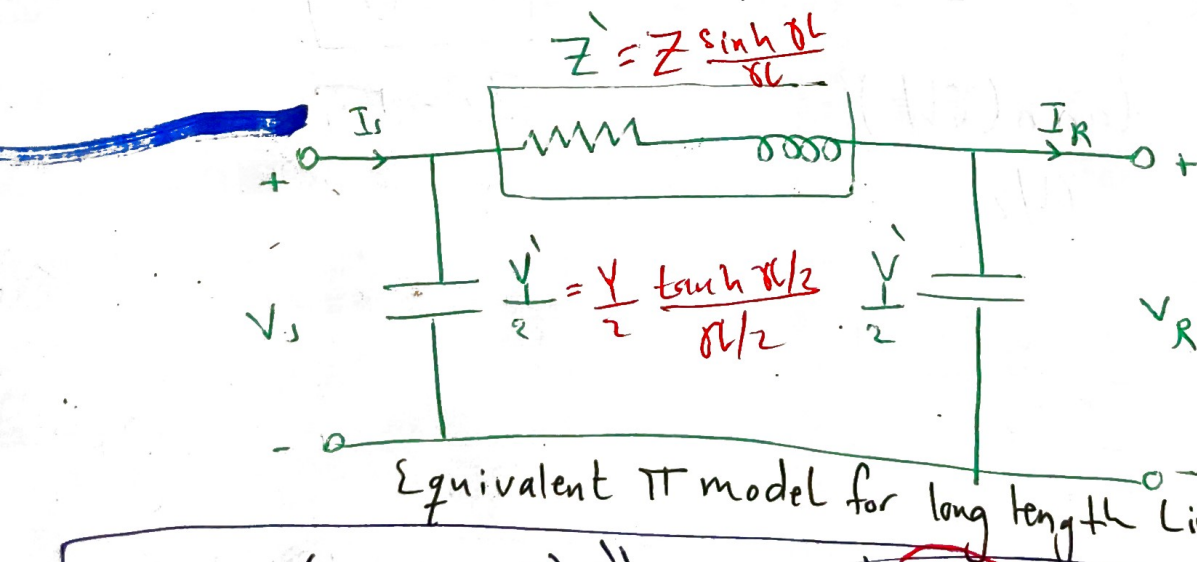 Z` = Z sinh γl / γl
Is
IR
+
+
Vs
Y`/2 = Y/2 tanh γl/2 / γl/2
Y`/2
VR
-
-
Equivalent π model for long length Li